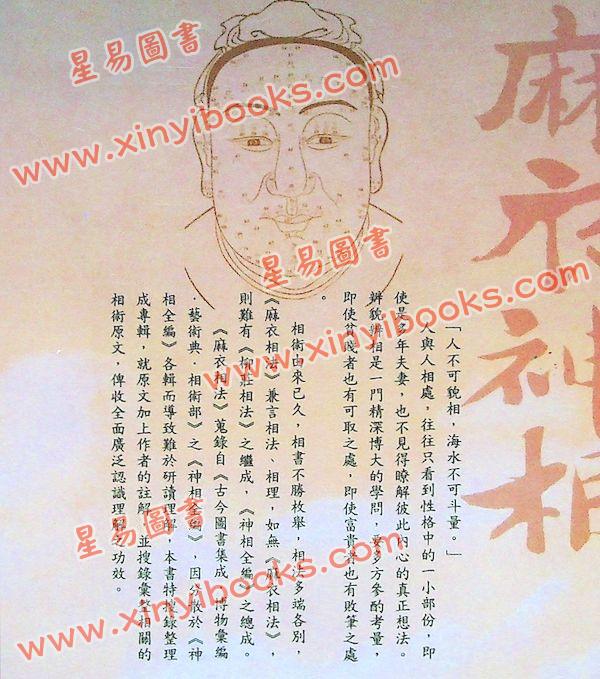 麻衣神相
「人不可貌相，海水不可斗量。」
人與人相處，往往只看到性格中的一小部份，即
使是多年夫妻，也不見得瞭解彼此內心的真正想法。
辨貌辨相是一門精深博大的學問，要多方參酌考量，
即使貧賤者也有可取之處，即使富貴者也有敗筆之處
。
相術由來已久，相書不勝枚舉，相法多端各別，
《麻衣相法》兼言相法、相理，如無《麻衣相法》，
則難有《柳莊相法》之繼成，《神相全編》之總成。
《麻衣相法》蒐錄自《古今圖書集成·博物彙編
·藝術典·相術部》之《神相全編》，因分散於《神
相全編》各輯而導致難於研讀理解，本書特搜錄整理
成專輯，就原文加上作者的註解，並搜錄彙整相關的
相術原文，俾收全面廣泛認識理解之功效。
星易圖書
www.xinyibooks.com
www.xinyibooks.com
星易圖書
www.xinyibooks.com
星易圖書
www.xinyibooks.com
星易圖書
www.xinyibooks.com